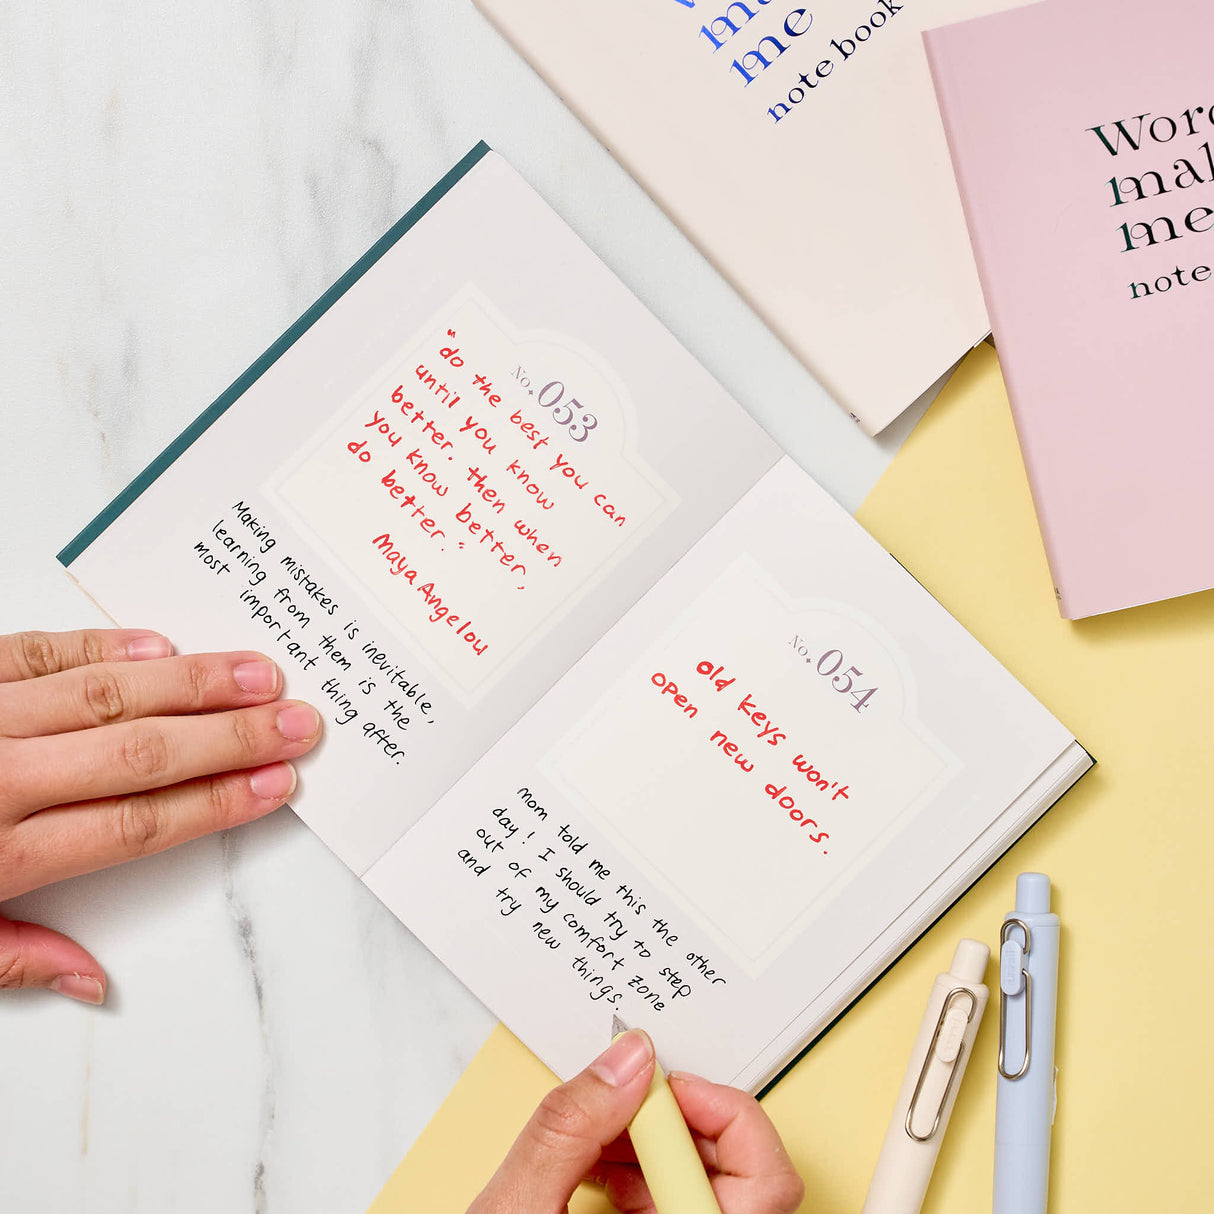 me
note book
me
note
No. 053
"do the best you can
until you know
better. then when
you know better,
do better."
Maya Angelou
Making mistakes is inevitable,
learning from them is the
most important thing after.
No. 054
old keys won't
open new doors.
mom told me this the other
day! I should try to step
out of my comfort zone
and try new things.